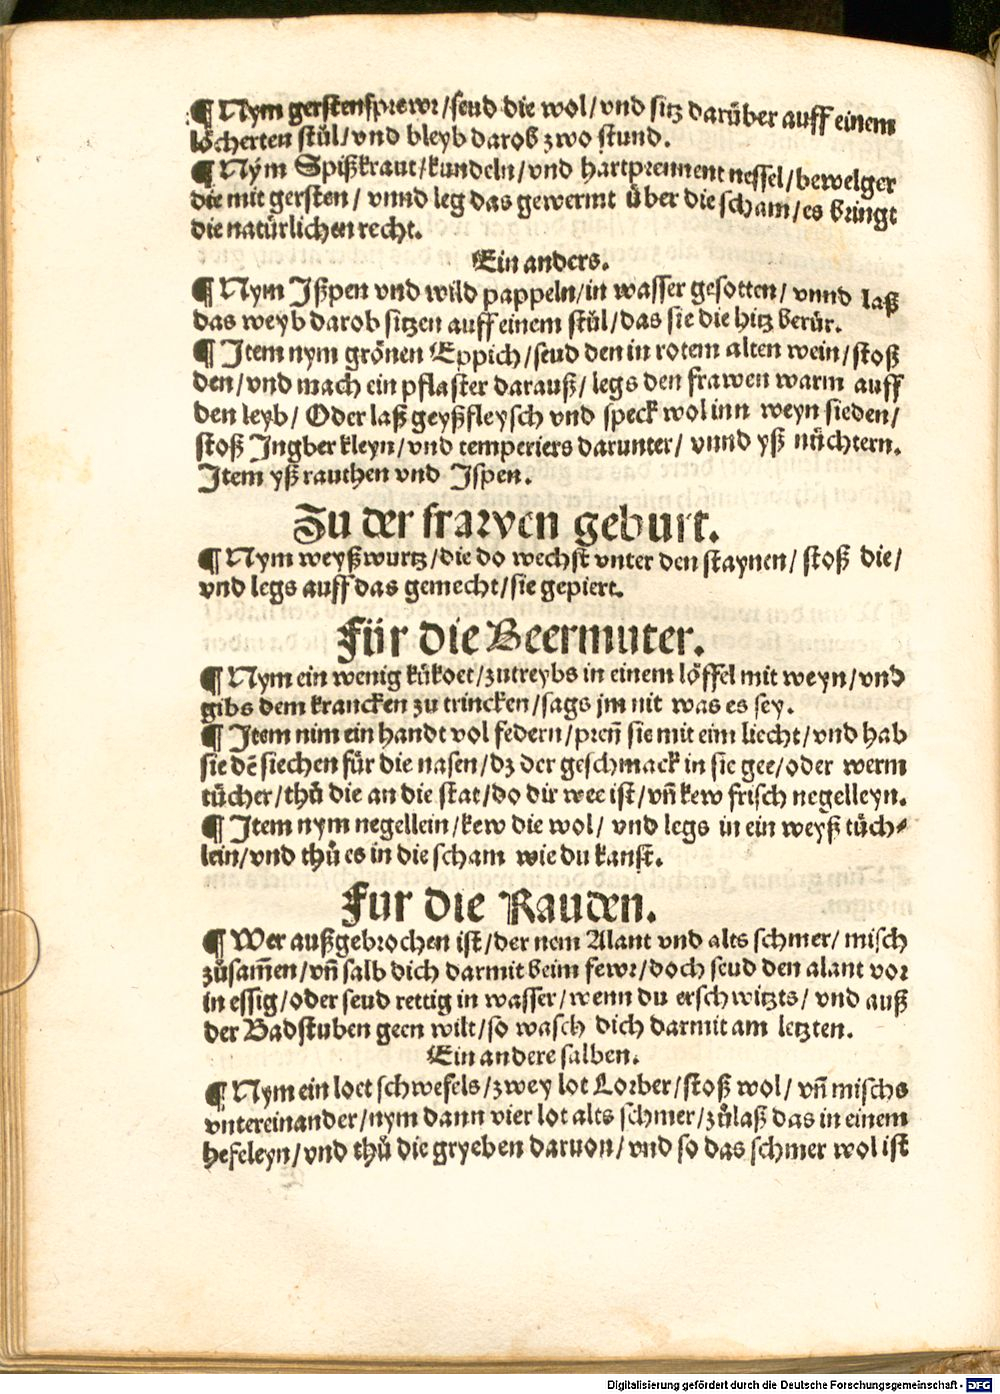 ¶ Nym gerstensprewr/seud die wol/vnd sitz darüber auff einem
löcherten stůl/vnd bleyb darob zwo stund.
¶ Nym Spißkraut/kundeln/vnd hartprennent nessel/bewelger
die mit gersten/ vnnd leg das gewermt über die scham/es bringt
die natürlichen recht.
Ein anders.
¶ Nym Jßpen vnd wild pappeln/in wasser gesotten/ vnnd laß
das weyb darob sitzen auff einem stůl/das sie die hitz berür.
¶ Jtem nym grönen Eppich/seud den in rotem alten wein/stoß
den/vnd mach ein pflaster darauß/ legs den frawen warm auff
den leyb/ Oder laß geyßfleysch vnd speck wol inn weyn sieden/
stoß Jngber kleyn/vnd temperiers darunter/ vnnd yß nüchtern.
Jtem yß rauthen vnd Jspen.
Zu der frawen geburt.
¶ Nym weyßwurtz/die do wechst vnter den staynen/ stoß die/
vnd legs auff das gemecht/sie gepiert.
Für die Beermuter.
¶ Nym ein wenig kůkoet/zutreybs in einem löffel mit weyn/vnd
gibs dem krancken zu trincken/sags jm nit was es sey.
¶ Jtem nim ein handt vol federn/preñ sie mit eim liecht/vnd hab
sie dẽ siechen für die nasen/dz der geschmack in sie gee/oder werm
tücher/thů die an die stat/do dir wee ist/vñ kew frisch negelleyn.
¶ Jtem nym negellein/kew die wol/ vnd legs in ein weyß tüch⸗
lein/vnd thů es in die scham wie du kanst.
Fur die Rauden.
¶ Wer außgebrochen ist/der nem Alant vnd alts schmer/ misch
zůsam̃en/vñ salb dich darmit beim fewr/doch seud den alant vor
in essig/oder seud rettig in wasser/wenn du erschwitzts/ vnd auß
der Badstuben geen wilt/so wasch dich darmit am letzten.
Ein andere salben.
¶ Nym ein loet schwefels/zwey lot Lorber/stoß wol/ vñ mischs
vntereinander/nym dann vier lot alts schmer/zůlaß das in einem
hefeleyn/vnd thů die gryeben daruon/vnd so das schmer wol ist
Digitalisierung gefördert durch die Deutsche Forschungsgemeinschaft - DFG